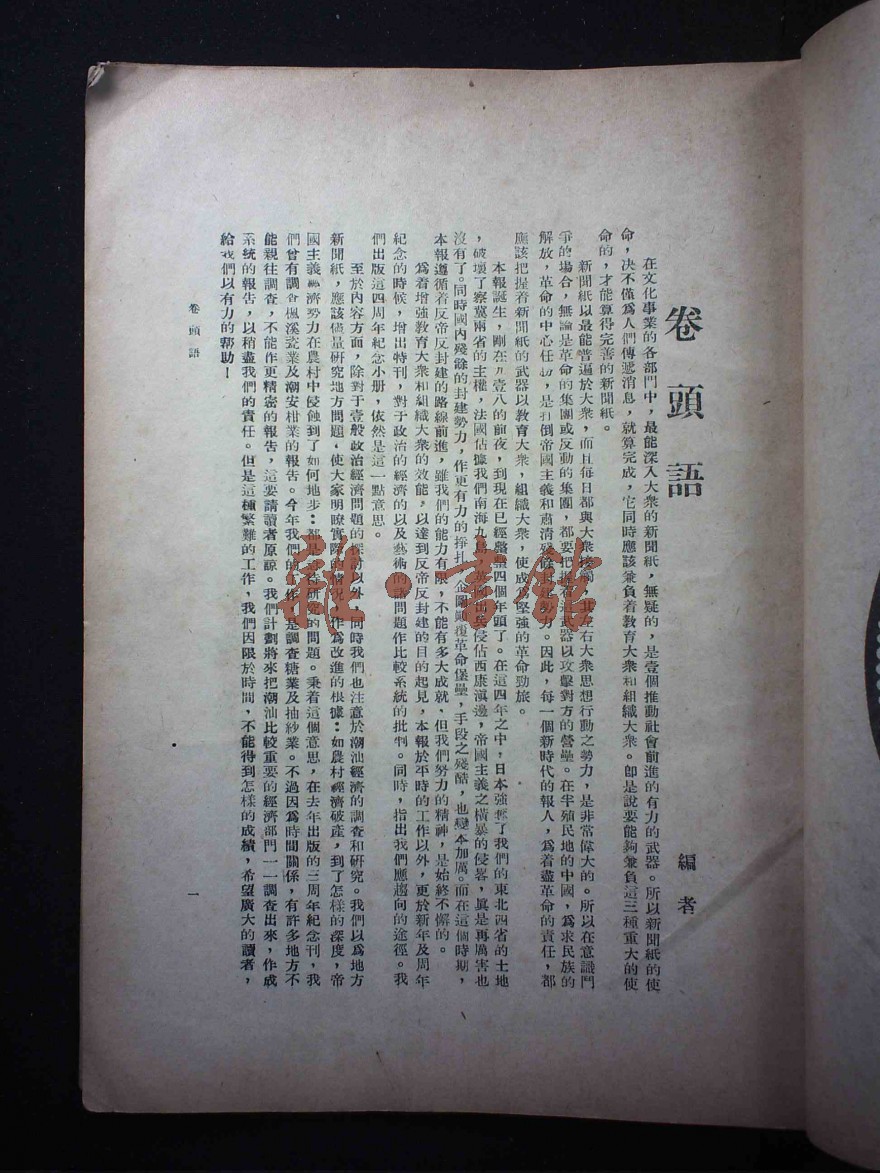 卷頭語
編者
在文化事業的各部門中，最能深入大衆的新聞紙，無疑的，是壹個推動社會前進的有力的武器。所以新聞紙的使
命，决不僅爲人們傳遞消息，就算完成，它同時應該兼負着教育大衆和組織大衆。卽是說要能夠兼負這三種重大的使
命的，才能算得完善的新聞紙。
新聞紙以最能普遍於大衆，而且每日都與大衆接觸，其左右大衆思想行動之勢力，是非常偉大的。所以在意識鬥
爭的場合，無論是革命的集團或反動的集團，都要把握着這武器以攻擊對方的營壘。在半殖民地的中國，爲求民族的
解放，革命的中心任務，是打倒帝國主義和肅清殘餘封建勢力。因此，每一個新時代的報人，爲着盡革命的責任，都
應該把握着新聞紙的武器以教育大衆，組織大衆，使成爲堅強的革命勁旅。
本報誕生，剛在九壹八的前夜，到現在已經整整四個年頭了。在這四年之中，日本強奪了我們的東北四省的土地
，破壞了察冀兩省的主權，法國佔據我們南海九島，英國出兵侵佔西康滇邊，帝國主義之橫暴的侵畧，眞是再厲害也
沒有了。同時國內殘餘的封建勢力，作更有力的掙扎，企圖顚覆革命堡壘，手段之殘酷，也變本加厲。而在這個時期，
本報遵循着反帝反封建的路線前進，雖我們的能力有限，不能有多大成就，但我們努力的精神，是始終不懈的。
爲着增強教育大衆和組織大衆的效能，以達到反帝反封建的目的起見，本報於平時的工作以外，更於新年及周年
紀念的時候，增出特刊，對于政治的經濟的以及藝術的諸問題作比較系統的批判。同時，指出我們應趨向的途徑。我
們出版這四周年紀念小册，依然是這一點意思。
至於內容方面，除對于壹般政治經濟問題的探討以外，同時我們也注意於潮汕經濟的調查和研究。我們以爲地方
新聞紙，應該儘量研究地方問題，使大家明瞭實際的情况，作爲改進的根據：如農村經濟破產，到了怎樣的深度，帝
國主義經濟勢力在農村中侵蝕到了如何地步：都是這待研究的問題。秉着這個意思，在去年出版的三周年紀念刊，我
們曾有調查楓溪瓷業及潮安柑業的報告。今年我們的工作，是調查糖業及抽紗業。不過因爲時間關係，有許多地方不
能親往調查，不能作更精密的報告，這要請讀者原諒。我們計劃將來把潮汕比較重要的經濟部門一一調查出來，作成
系統的報告，以稍盡我們的責任。但是這種繁難的工作，我們因限於時間，不能得到怎樣的成績，希望廣大的讀者，
給我們以有力的帮助！
卷頭語
一
雜·書館